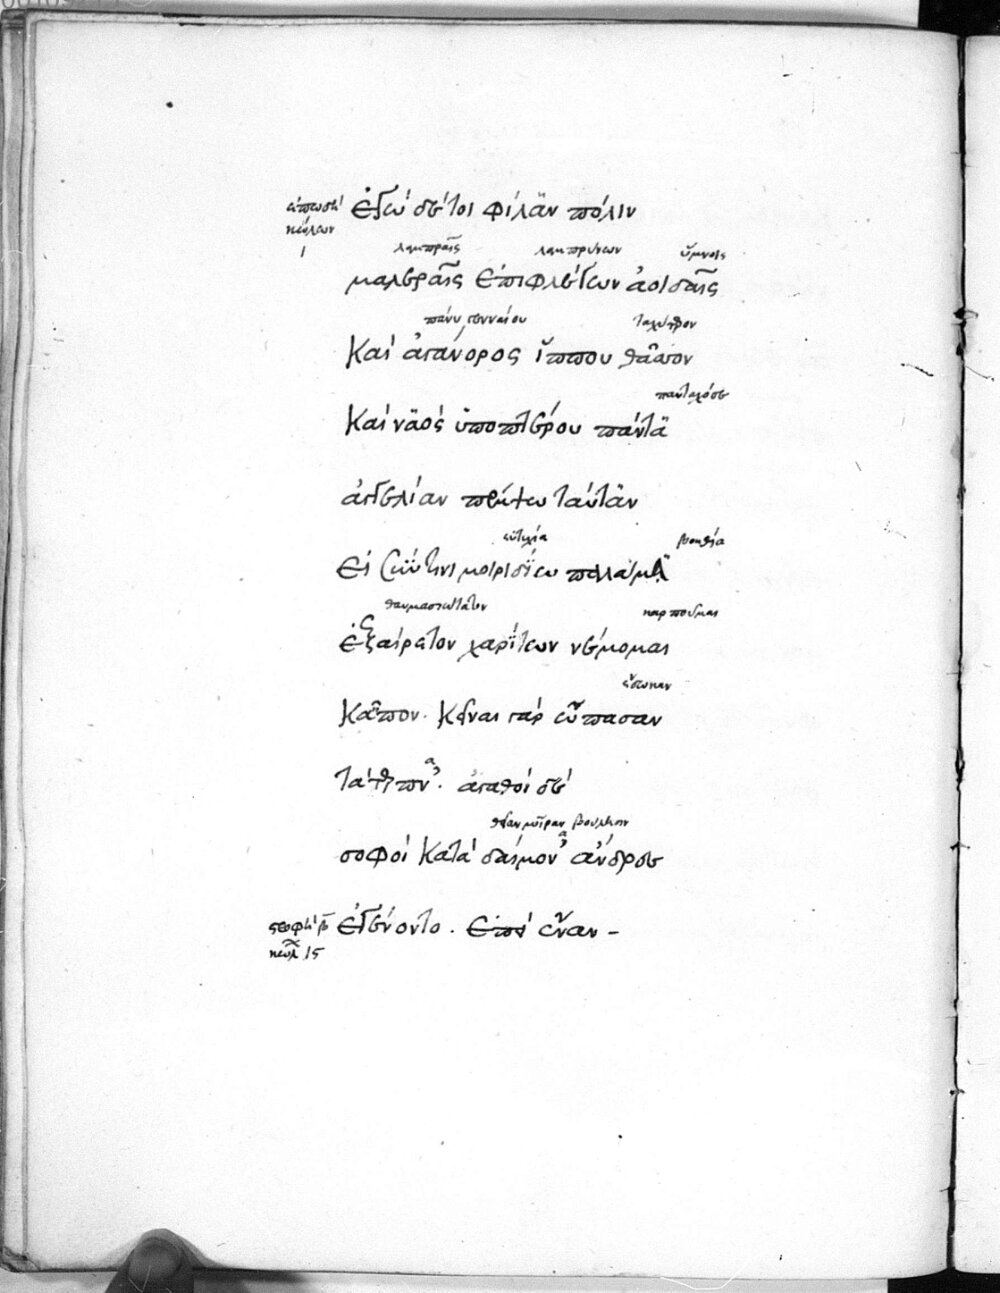 ἐπωδὴ ἐγὼ δέ τοι φίλαν πόλιν
κώλων
λαμπραῖς λαμπρύνων ὕμνοις
μαλεραῖς ἐπιφλέγων ἀοιδαῖς
πάνυ γενναίου ταχύτερον
καὶ ἀγάνορος ἵππου θᾶσσον
πανταχόσε
καὶ ναὸς ὑποπτέρου παντᾶ
ἀγγελίαν πέμψω ταύταν
εὐτυχία βοηθεία
εἰ σύν τινι μοιριδίω παλάμα
θαυμασιώτατον καρποῦμαι
ἐξαίρετον χαρίτων νέμομαι
ἔδωκαν
κᾶπον. κεῖναι γὰρ ὤπασαν
τὰ τερπν. ἀγαθοὶ δὲ
θείαν μοῖραν βούλησιν
σοφοὶ κατὰ δαίμον' ἄνδρες
στροφὴ β ἐγένοντο. ἐπεὶ
κώλ